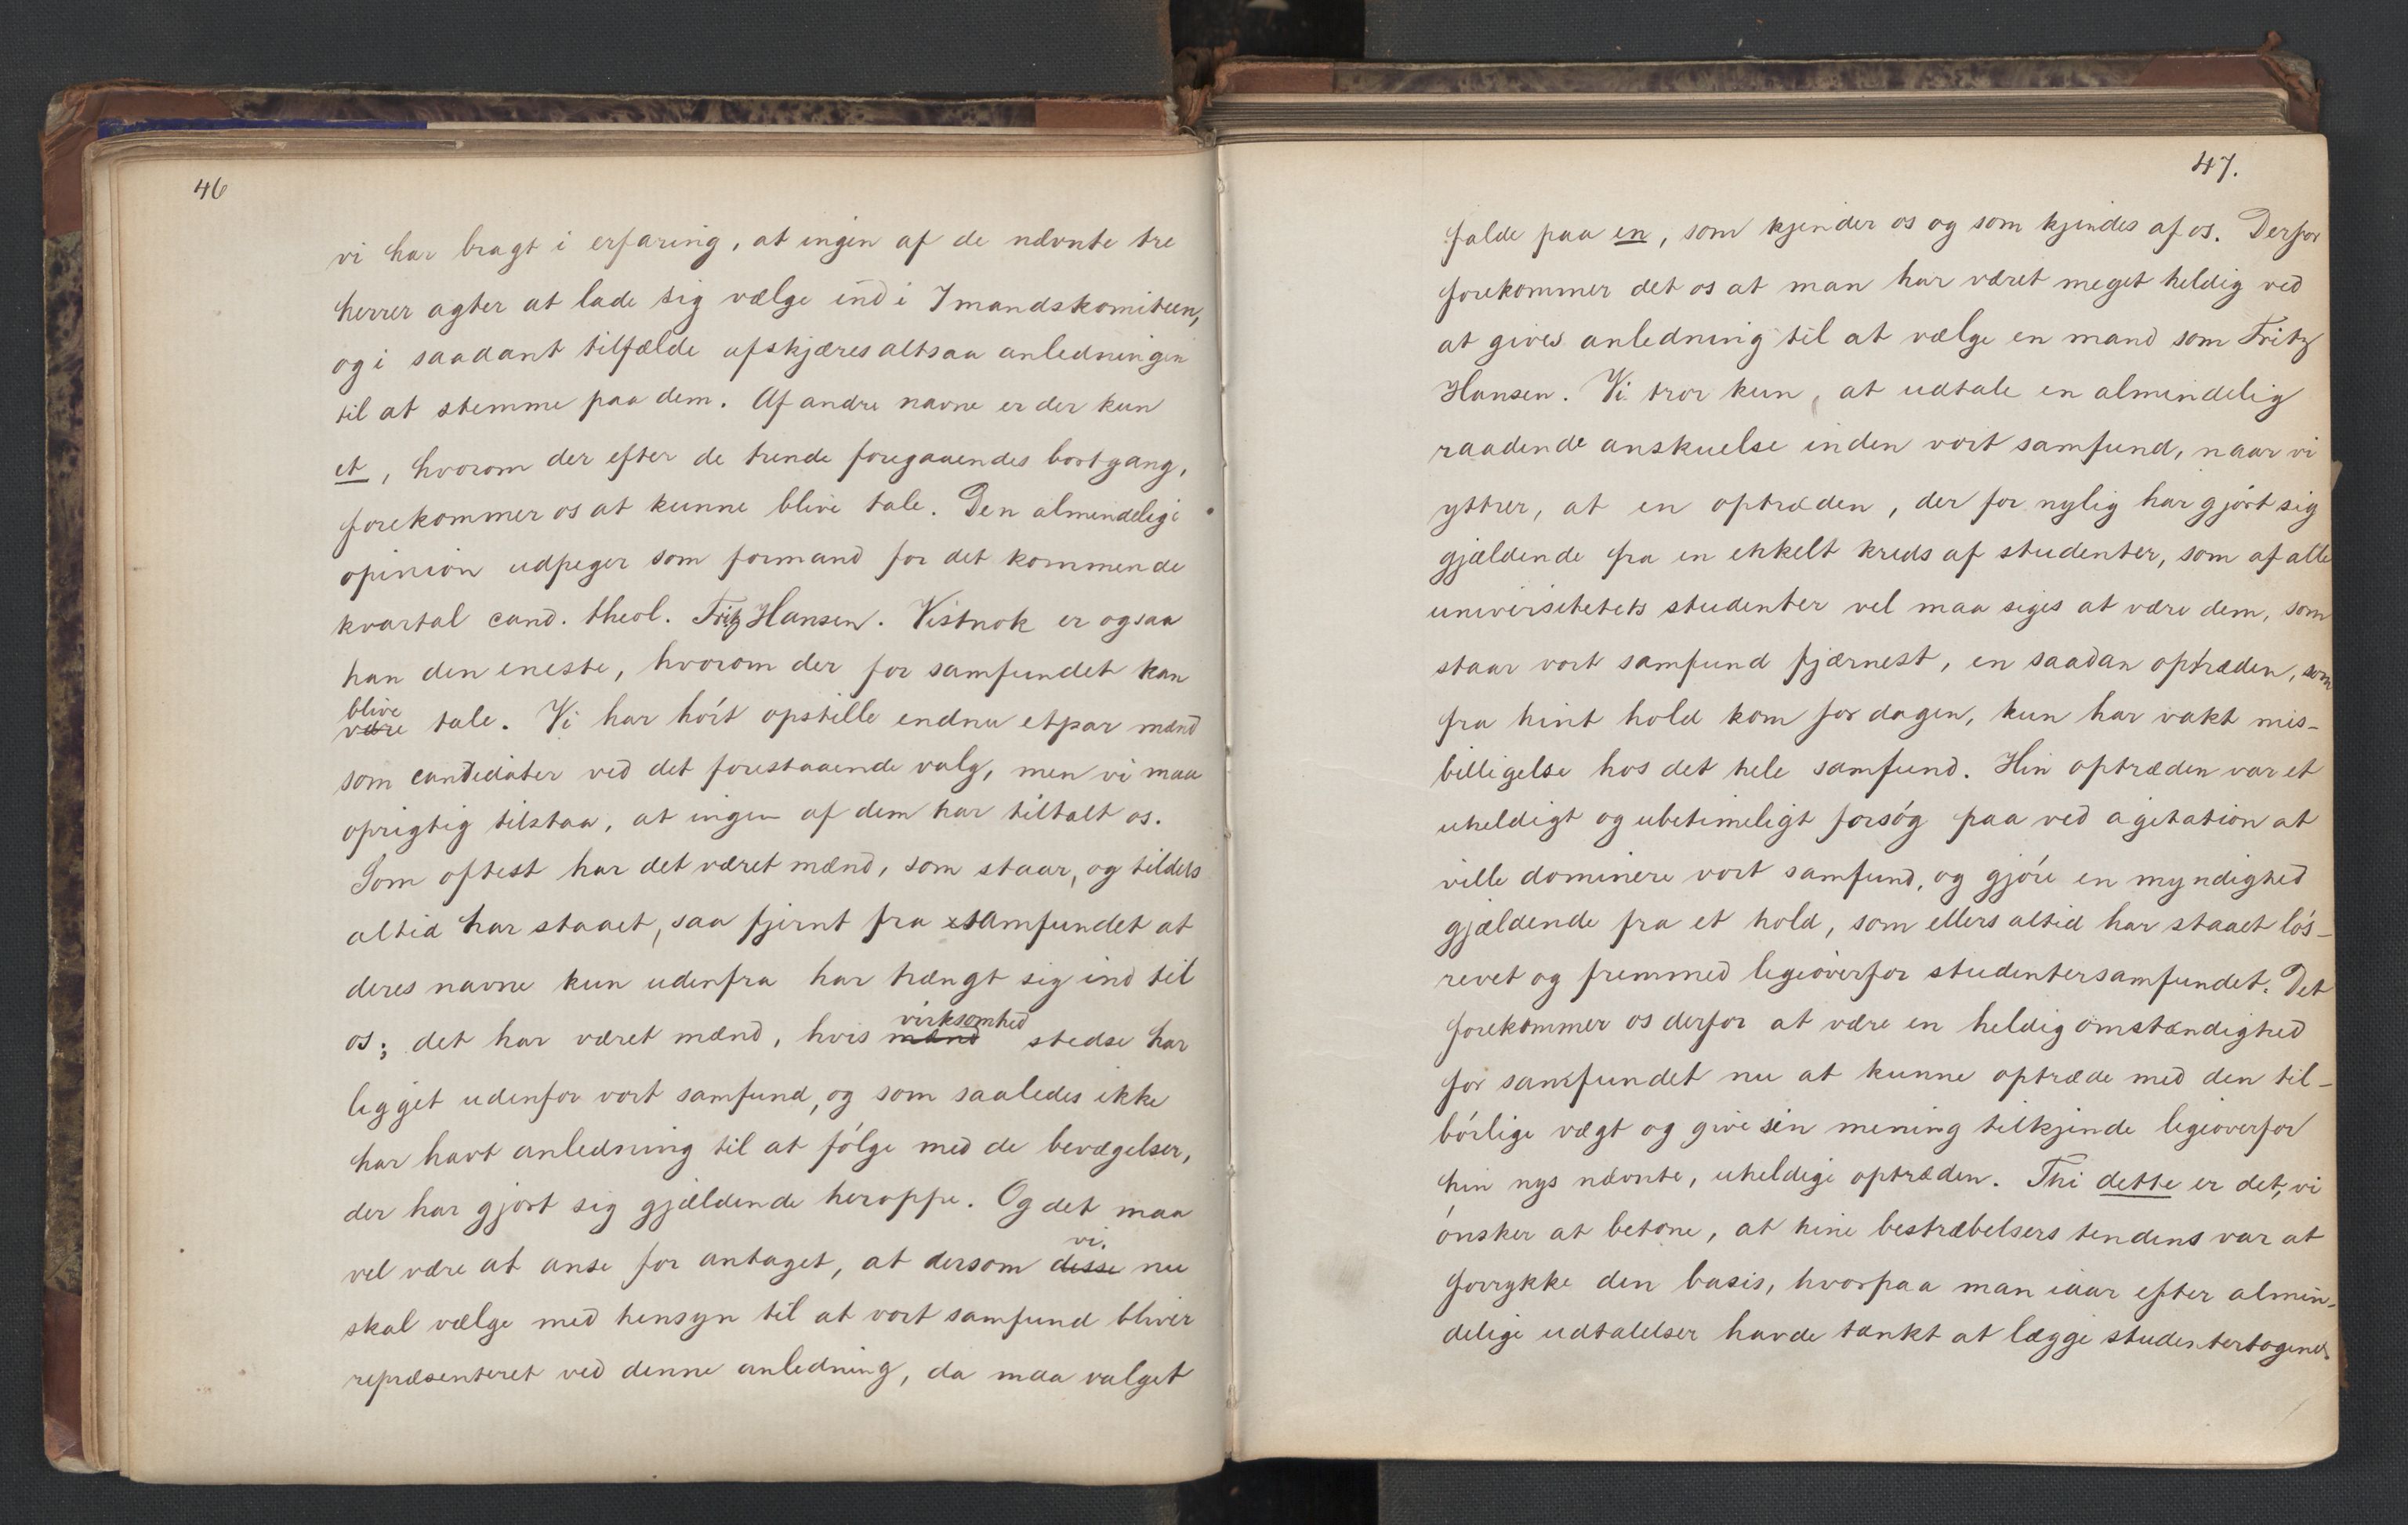 46
vi har bragt i erfaring, at ingen af de nævnte tre
herrer agter at lade sig vælge ind i 7mandskomiteen,
og i saadant tilfælde afskjæres altsaa anledningen
til at stemme paa dem. Af andre navne er der kun
et, hvorom der efter de trende foregaaendes bortgang,
forekommer os at kunne blive tale. Den almindelige
opinion udpeger som formand for det kommende
kvartal cand. theol. Fritz Hansen. Vistnok er ogsaa
han den eneste, hvorom der for samfundet kan
blive
være tale. Vi har hört opstille endnu etpar mænd
som candidater ved det forestaaende valg, men vi maa
oprigtig tilstaa, at ingen af dem har tiltalt os.
Som oftest har det været mænd, som staar, og tildels
altid har staaet, saa fjernt fra samfundet at
deres navne kun udenfra har trængt sig ind til
virksomhed
os; det har været mænd, hvis mænd stedse har
ligget udenfor vort samfund, og som saaledes ikke
har havt anledning til at fölge med de bevægelser,
der har gjort sig gjældende heroppe. Og det maa
vi
vel være at anse for antaget, at dersom disse nu
skal vælge med hensyn til at vort samfund bliver
repræsenteret ved denne anledning, da maa valget
47.
falde paa en, som kjender os og som kjendes af os. Derfor
forekommer det os at man har været meget heldig ved
at gives anledning til at vælge en mand som Fritz
Hansen. Vi tror kun, at udtale en almindelig
raadende anskuelse inden vort samfund, naar vi
yttrer, at en optræden, der for nylig har gjórt sig
gjældende fra en enkelt kreds af studenter, som af alle
universitetets studenter vel maa siges at være dem, som
staar vort samfund fjærnest, en saadan optræden, som
fra hint hold kom for dagen, kun har vakt mis-
billigelse hos det hele samfund. Hin optræden var et
uheldigt og ubetimeligt forsóg paa ved agitation at
ville dominere vort samfund, og gjóre en myndighed
gjældende fra et hold, som ellers altid har staaet lós-
revet og fremmed ligeoverfor studentersamfundet. Det
forekommer os derfor at være en heldig omstændighed
for samfundet nu at kunne optræde med den til-
bórlige vægt og give sin mening tilkjende ligeoverfor
hin nys nævnte, uheldige optræden. Thi dette er det, vi
ónsker at betone, at hine bestræbelsers tendens var at
forrykke den basis, hvorpaa man iaar efter almin-
delige udtalelser havde tænkt at lægge studentertogene.